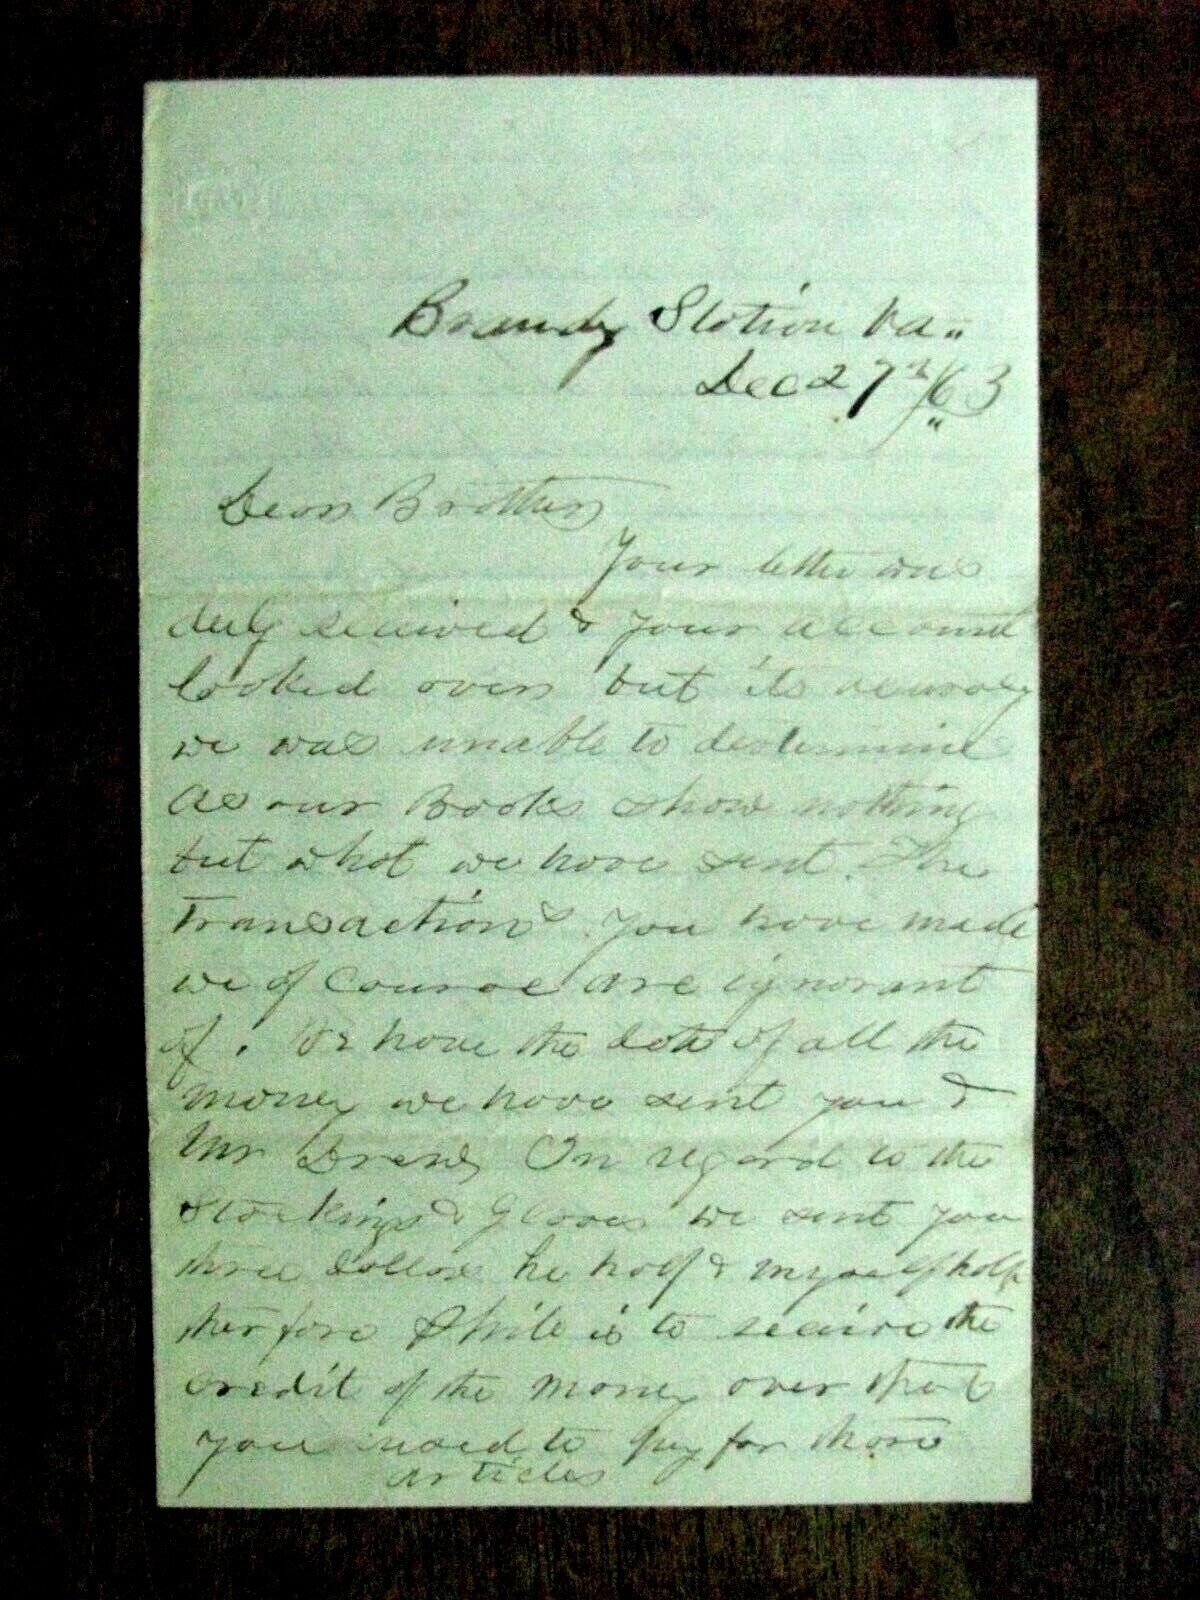 Brandy Station Va.
Dec 27th /63
Dear Brother
Your letter was
duly received & your account
looked over but its accuracy
we was unable to determine
As our Books show nothing
but what we have sent. The
Transactions you have made
we of course are ignorant
of. We have the date of all the
money we have sent you &
Mr In regard to the
Stockings & Gloves we sent you
three dollars he half & myself half
therfore is to receive the
credit of the money over that
you used to pay for those
articles